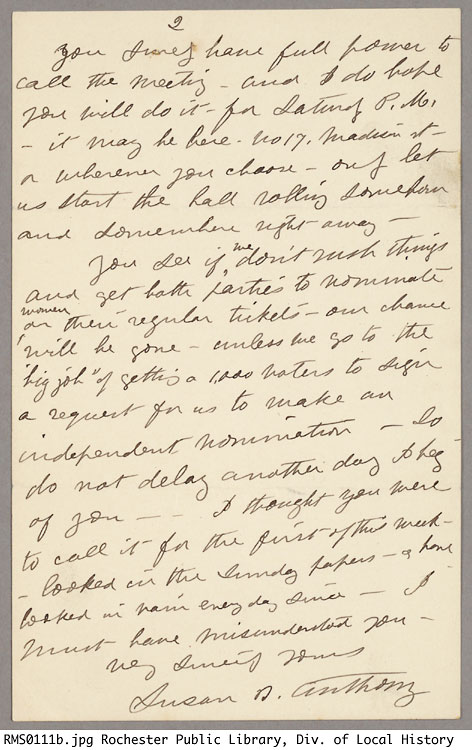 2
you surely have full power to
call the meeting - and I do hope
you will do it - for Saturday P.M.
- it may be here - no 17. Madison st -
or wherever you choose - only let
us start the ball rolling somehow
and somewhere right away -
you see if we don't rush things
and get both parties to nominate
women on their regular tickets - our chance
will be gone - unless we go to the
"big job" of getting a 1,000 voters to sign
a request for us to make an
independent nomination - So
do not delay another day I beg
of you - - I thought you were
to call it for the first of this week -
- looked in the Sunday papers - & have
looked in vain every day since - I
must have misunderstood you -
very sincerely yours
Susan B. Anthony
RMS0111b.jpg Rochester Public Library, Div. of Local History